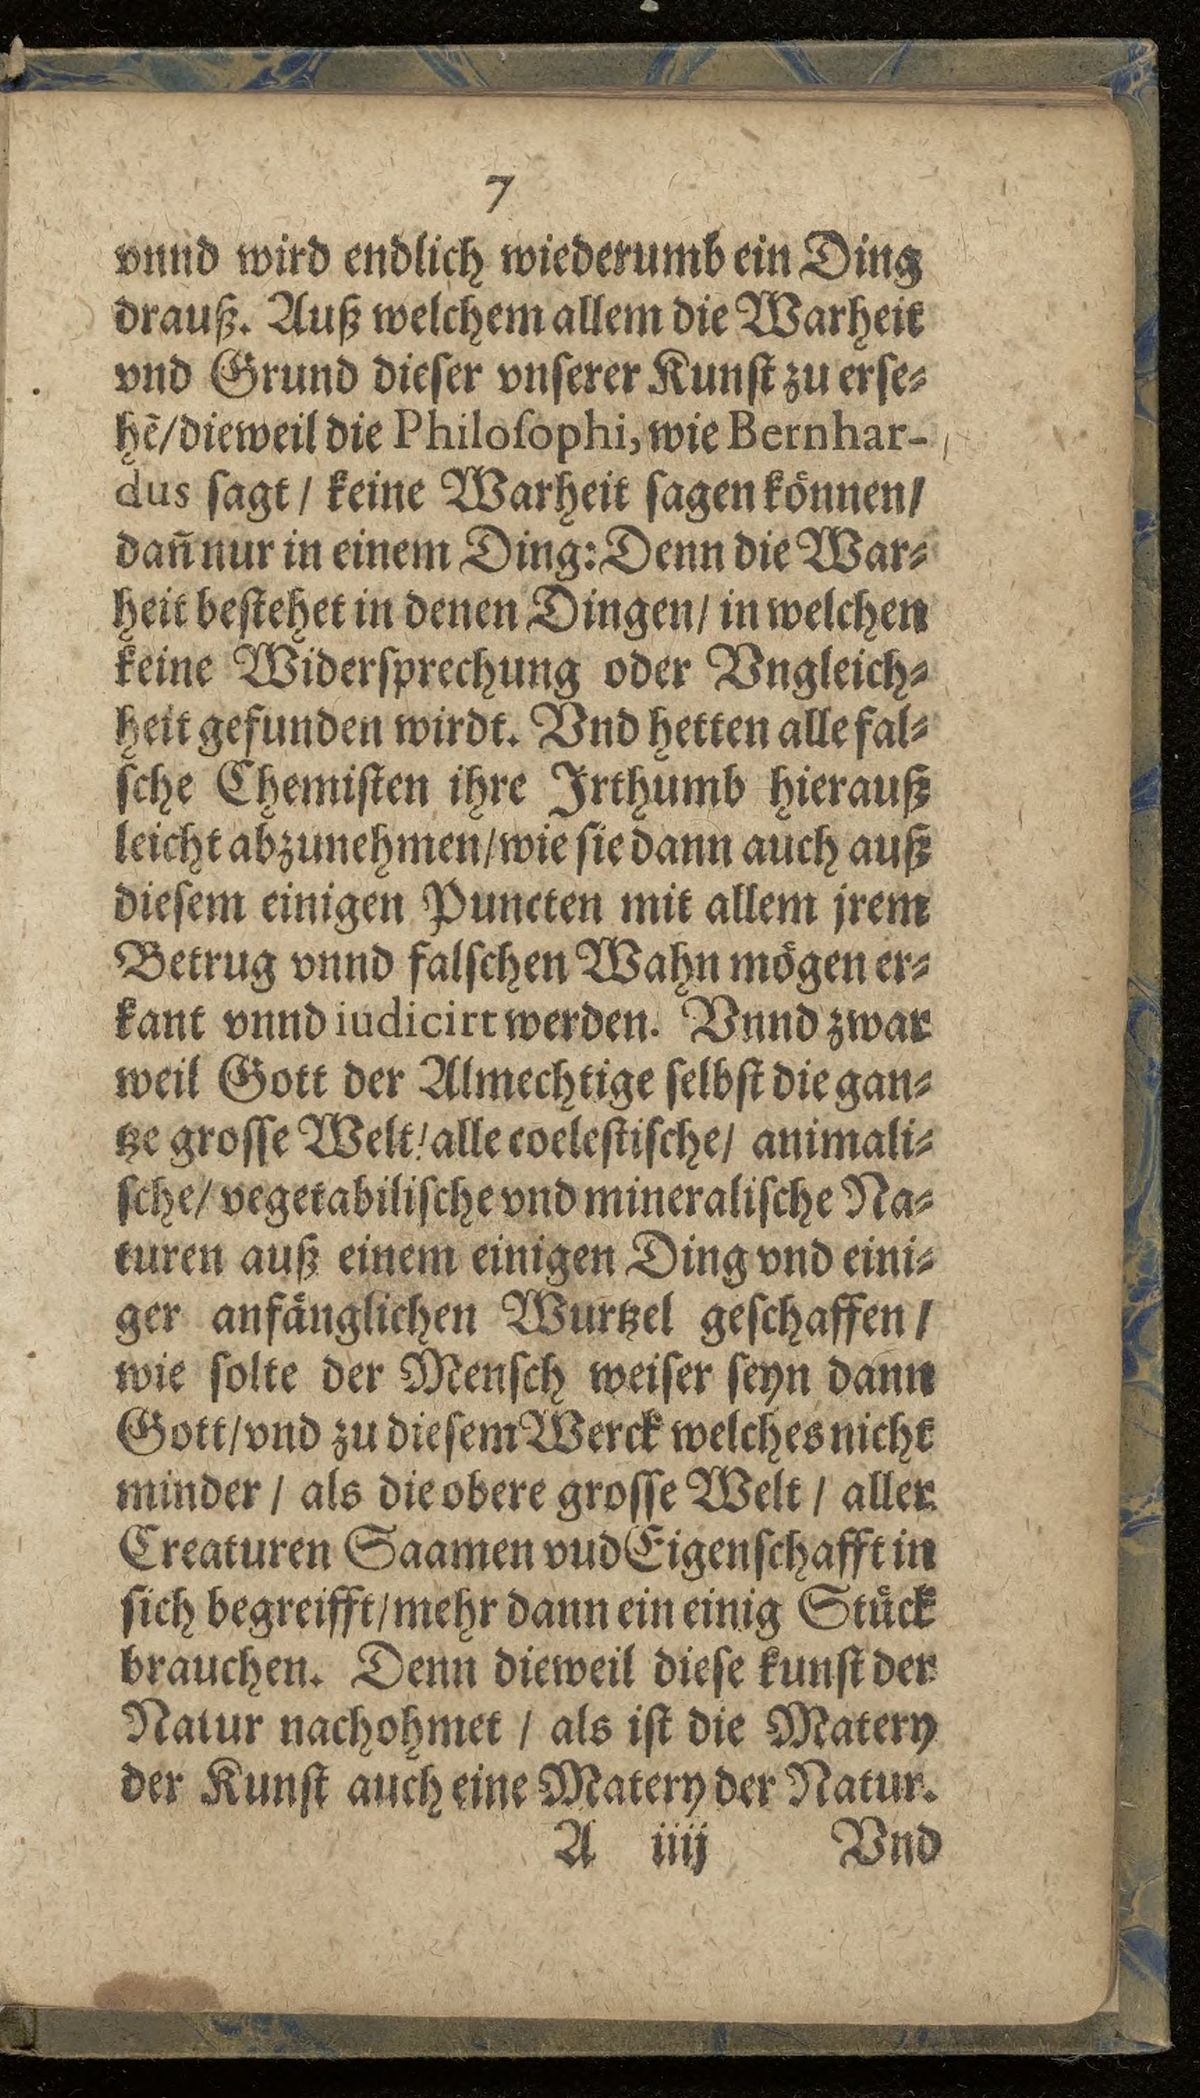 7
vnnd wird endlich wiederumb ein Ding
drauß. Auß welchem allem die Warheit
vnd Grund dieser vnserer Kunst zu erse⸗
hẽ/dieweil die Philosophi, wie Bernhar-
dus sagt / keine Warheit sagen koͤnnen/
dañ nur in einem Ding: Denn die War⸗
heit bestehet in denen Dingen/ in welchen
keine Widersprechung oder Vngleich⸗
heit gefunden wirdt. Vnd hetten alle fal⸗
sche Chemisten ihre Irthumb hierauß
leicht abzunehmen/wie sie dann auch auß
diesem einigen Puncten mit allem jrem
Betrug vnnd falschen Wahn moͤgen er⸗
kant vnnd iudicirt werden. Vnnd zwar
weil Gott der Almechtige selbst die gan⸗
tze grosse Welt/alle coelestische/ animali⸗
sche/ vegetabilische vnd mineralische Na⸗
turen auß einem einigen Ding vnd eini⸗
ger anfaͤnglichen Wurtzel geschaffen /
wie solte der Mensch weiser seyn dann
Gott/vnd zu diesem Werck welches nicht
minder / als die obere grosse Welt / aller
Creaturen Saamen vud Eigenschafft in
sich begreifft/mehr dann ein einig Stuͤck
brauchen. Denn dieweil diese kunst der
Natur nachohmet / als ist die Matery
der Kunst auch eine Matery der Natur.
A iiij Vnd